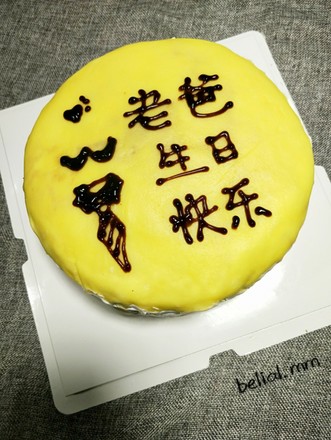 老爸
生日
快乐
belial.mm